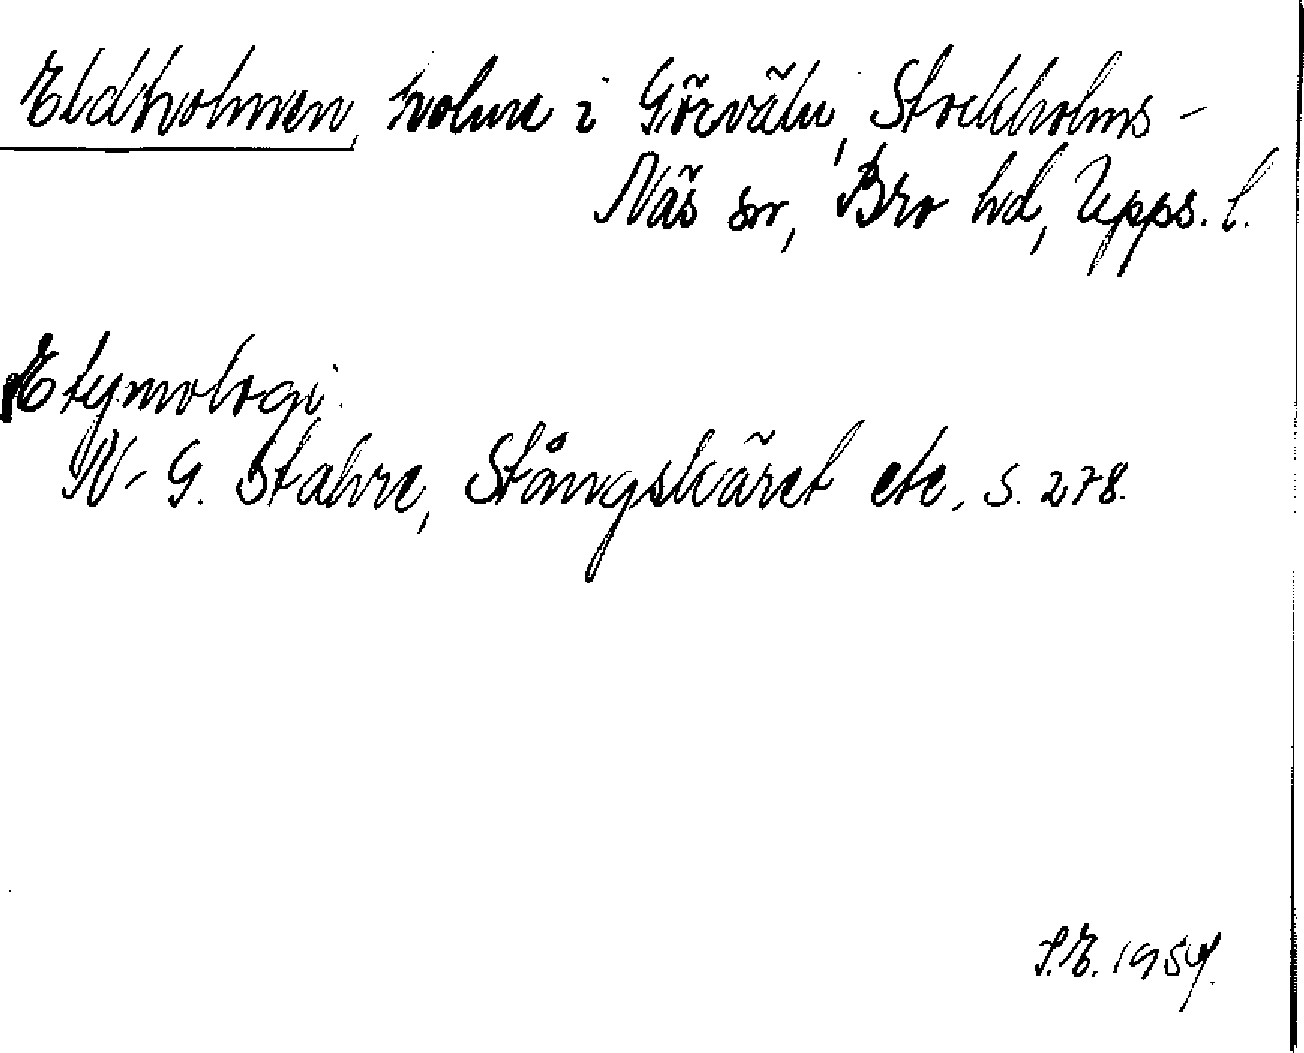 Eldholmen, holme i Görväln, Stockholms-
Näs sn, Bro hd, Upps. l.
Etymologi:
N-G. Stahre, Stångskäret etc, s. 278.
S.E. 1954.